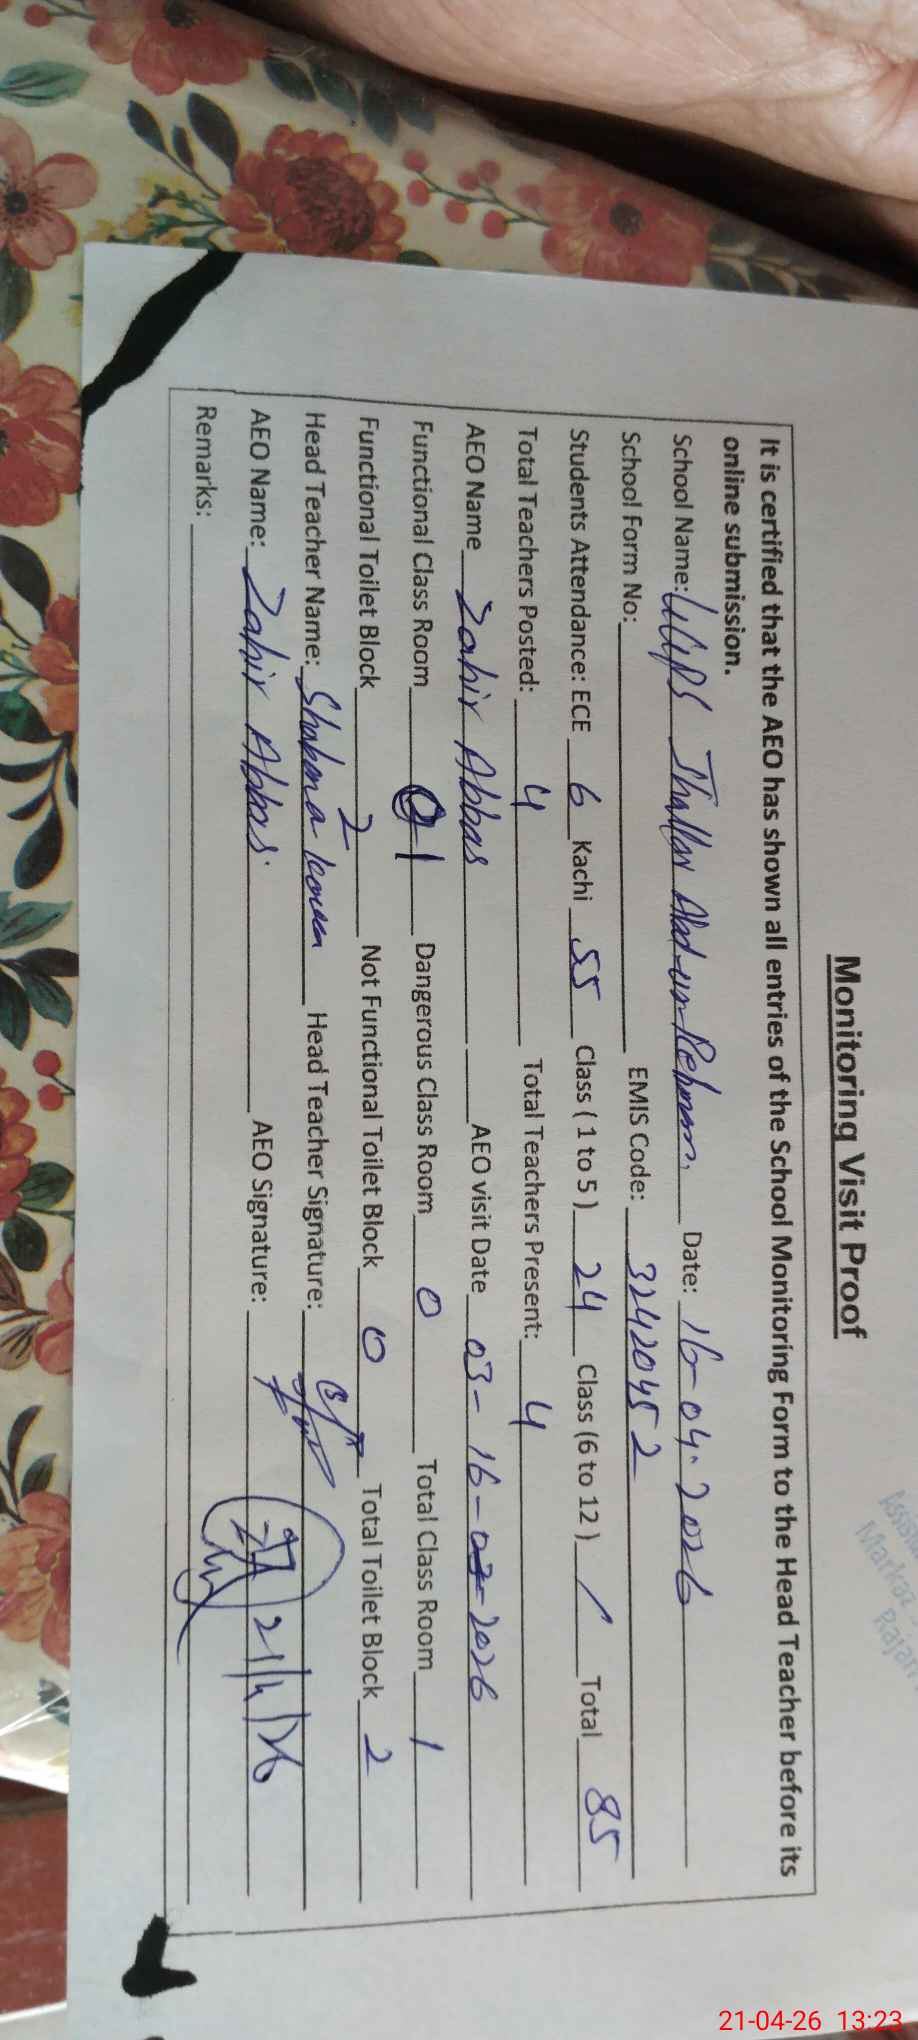 Monitoring Visit Proof
It is certified that the AEO has shown all entries of the School Monitoring Form to the Head Teacher before its
online submission.
School Name: Abd-ur-Rehman. Date: 16-04-2026
School Form No: EMIS Code: 32420452
Students Attendance: ECE 6 Kachi 55 Class ( 1 to 5 ) 24 Class (6 to 12 ) / Total 85
Total Teachers Posted: 4 Total Teachers Present: 4
AEO Name Zahir Abbas AEO visit Date 03- 16- 2026
Functional Class Room 1 Dangerous Class Room 0 Total Class Room 1
Functional Toilet Block 2 Not Functional Toilet Block 0 Total Toilet Block 2
Head Teacher Name: Head Teacher Signature:
AEO Name: Zahir Abbas. AEO Signature: 21/4/26
Remarks:
21-04-26 13:23